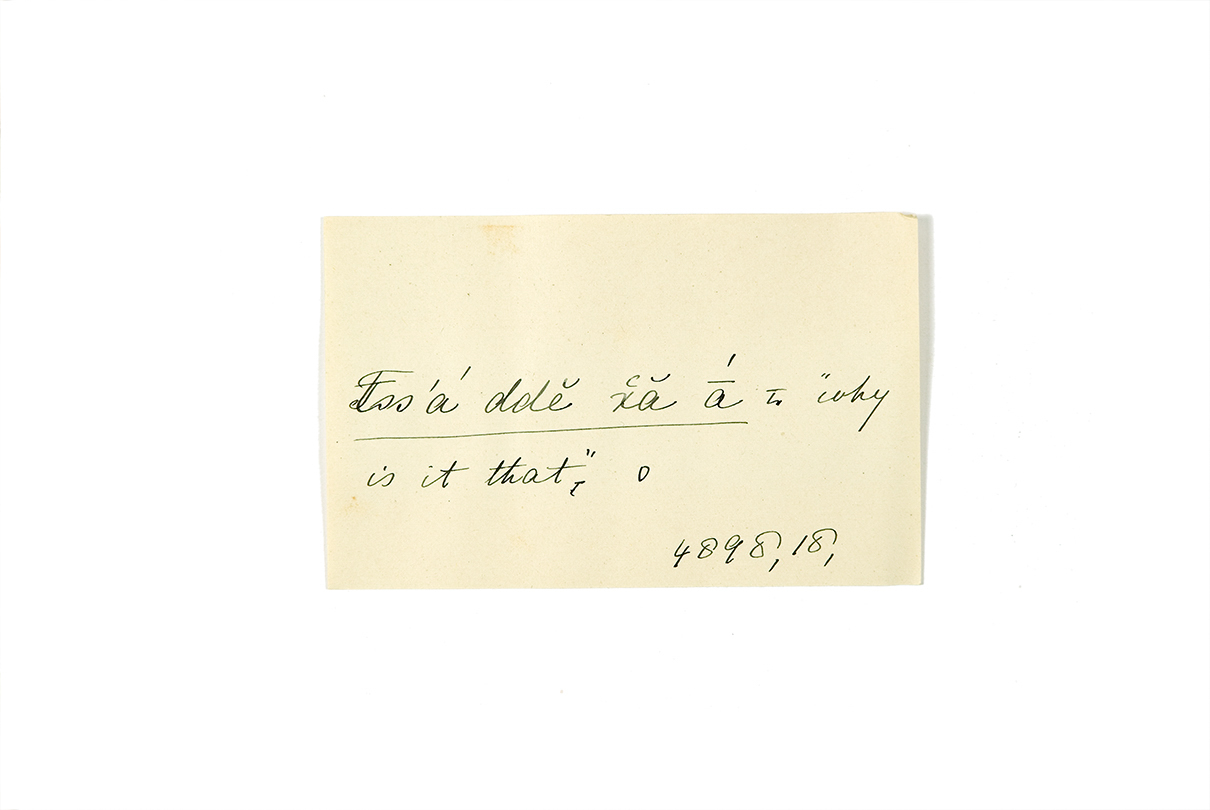 Tss'á ddĕ x̌ă ā́ = "why
is it that". 0
4898, 18,